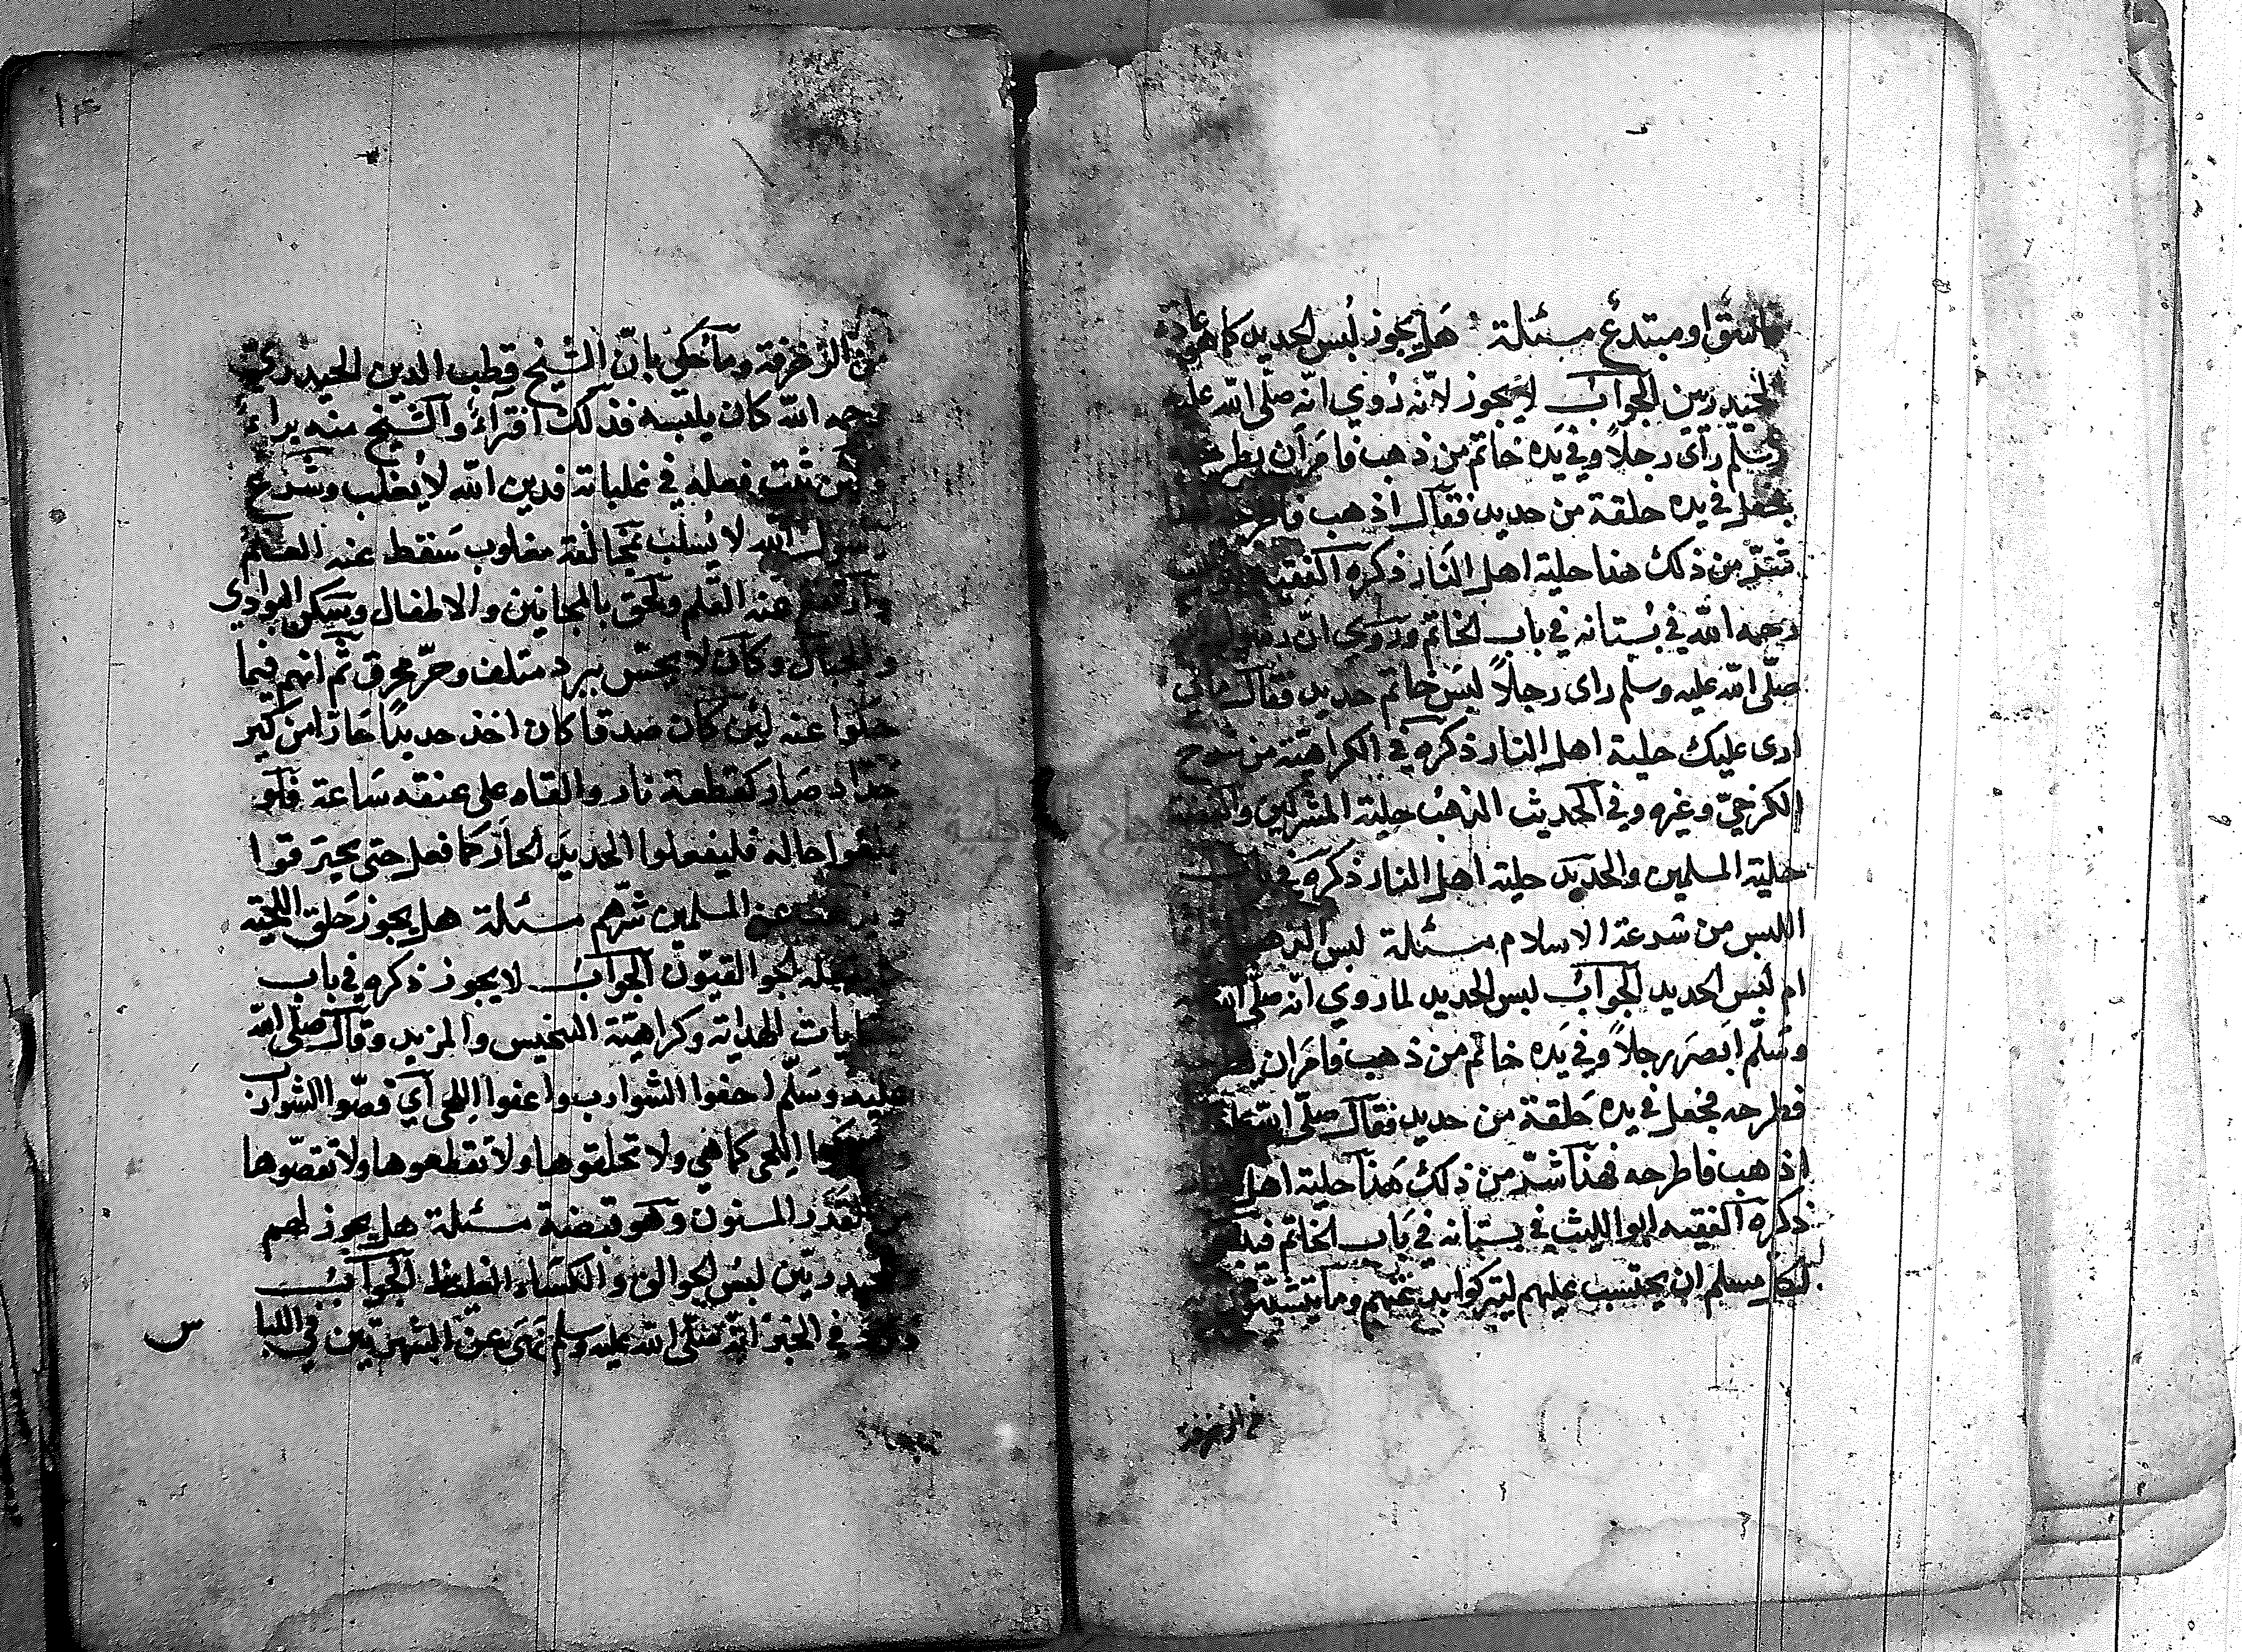 فاسق او مبتدع مسئلة هل يجوز لبس الحديد كما هو عادة
الحيدريين الجواب لا يجوز لانّه رُوي انّه صلّى الله عليه
وسلّم رأى رجلاً وفي يده خاتم من ذهب فامَرَ ان يطرحه
فجعل في يده حلقة من حديد فقال اذهب فاطرحه
شرّ من ذلك هذا حلية اهل النار ذكره الفقيه
رحمه الله في بُستانه في باب الخاتم وروي انّ رسول الله
صلّى الله عليه وسلم راى رجلاً لبس خاتم حديد فقال مالي
ارى عليك حلية اهل النار ذكره في الكراهيّة من شرح
الكرخيّ وغيره وفي الحديث الذهبُ حلية المشركين والفضة
حلية المسلمين والحديد حلية اهل النار ذكره في
اللبس من شرعة الاسلام مسئلة لبس الذهب
ام لبس الحديد الجوابُ لبس الحديد لما روي انّه صلّى الله
وسَلّم ابصَر رجلاً وفي يده خاتم من ذهب فامَرَ ان
فطرحه فجعل في يده حَلقة من حديد فقال صلّى الله عليه
اذهب فاطرحه فهذا شرّ من ذلك هَذا حلية اهل النار
ذكره الفقيه ابو الليث في بستانه في بَاب الخاتم
لكل مسلم ان يحتسب عليهم ليتركوا بدعتهم وما يتشبثون به
من الزخرفة
من الزخرفة وما حُكي بانّ الشيخ قطب الدين الحيدري
رحمه الله كان يلبسه فذلك افتراءٌ والشيخ منه براءٌ
ولئن ثبت فعله في غلباته فدين الله لا يغلب وشرع
رسول الله لا يُسلب بمخالفة مغلوب سَقط عنه العلم
وارتفع عنه القلم ولحق بالمجانين والاطفال وسكن البوادي
والجبال وكان لا يحسّ ببرد متلف وحرّ محرق ثم انهم فيما
حكوا عنه لئن كان صدقا كان اخذ حديدًا حَارّا من كير
حدّاد صَار كقطعة نار والقاه على عنقه سَاعة فلو
بلغوا حاله فليفعلوا الحديدَ الحارّ كما فعل حتى يحترقوا
عن المسلمين شرّهم مسئلة هل يجوز حَلق اللحية
كما يفعله الجوالقيّون الجوابُ لا يجوز ذكره في باب
جنايات الهداية وكراهيّة التجنيس والمزيد وقال صلّى الله
عليه وسَلّم احفوا الشوارب واعفوا اللحى أي قصّوا الشوارب
واتركوا اللحى كما هي ولا تحلقوها ولا تقطعوها ولا تقصّوها
من القَدْر المسنون وهو قبضة مسئلة هل يجوز لهم
وللحيدريّين لبسُ الجوالق والكسَاء الغليظ الجوابُ
ورد في الخبر انّه صَلّى الله عليه وسلم نَهَى عن الشهرتين في اللبا
س